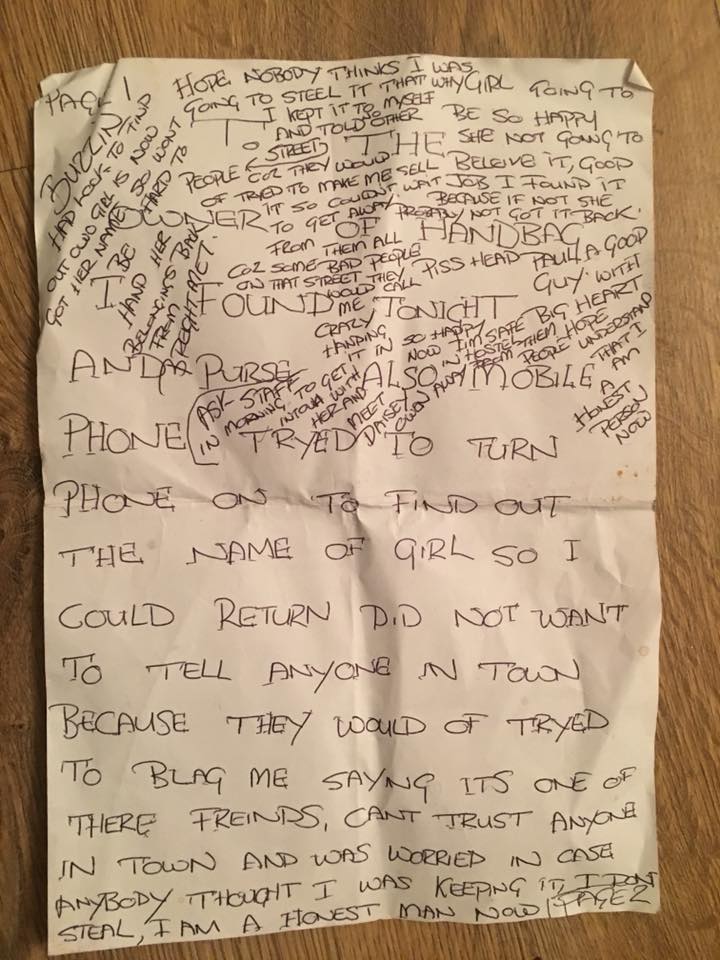 PAGE 1
TO THE
OWNER OF HANDBAG
I FOUND TONIGHT
AND PURSE ALSO MOBILE
PHONE TRYED TO TURN
PHONE ON TO FIND OUT
THE NAME OF GIRL SO I
COULD RETURN DID NOT WANT
TO TELL ANYONE IN TOWN
BECAUSE THEY WOULD OF TRYED
TO BLAG ME SAYNG ITS ONE OF
THERE FREINDS, CANT TRUST ANYONE
IN TOWN AND WAS WORRIED IN CASE
ANYBODY THOUGHT I WAS KEEPING IT, I DON'T
STEAL, I AM A HONEST MAN NOW PAGE 2
HOPE NOBODY THINKS I WAS
GOING TO STEEL IT THAT WHY
I KEPT IT TO MYSELF
AND TOLD NO OTHER
STREET
PEOPLE COZ THEY WOULD
OF TRYED TO MAKE ME SELL
IT SO COULDN'T WAIT
TO GET AWAY
FROM THEM ALL
COZ SOME BAD PEOPLE
ON THAT STREET THEY
WOULD CALL
ME
CRAZY
HANDING
IT IN SO HAPPY
NOW I'M SAFE
IN HOSTEL
AWAY FROM THEM HOPE
PEOPLE UNDERSTAND
THAT I
AM
A
HONEST
PERSON
NOW
GIRL GOING TO
BE SO HAPPY
SHE NOT GOING TO
BELEIVE IT, GOOD
JOB I FOUND IT
BECAUSE IF NOT SHE
PROBABLY NOT GOT IT BACK.
PISS HEAD PAUL A GOOD
GUY WITH
BIG HEART
BUZZIN
HAD LOOK TO FIND
OUT OWO GIRL IS NOW
GOT HER NAME SO WONT
BE HARD TO
HAND HER
BELONGINGS BACK
FROM
BREIGHT MET.
ASK STAFF
IN MORNING TO GET
INTOUA WITH
HER AND
MEET
DAISEY
OWEN